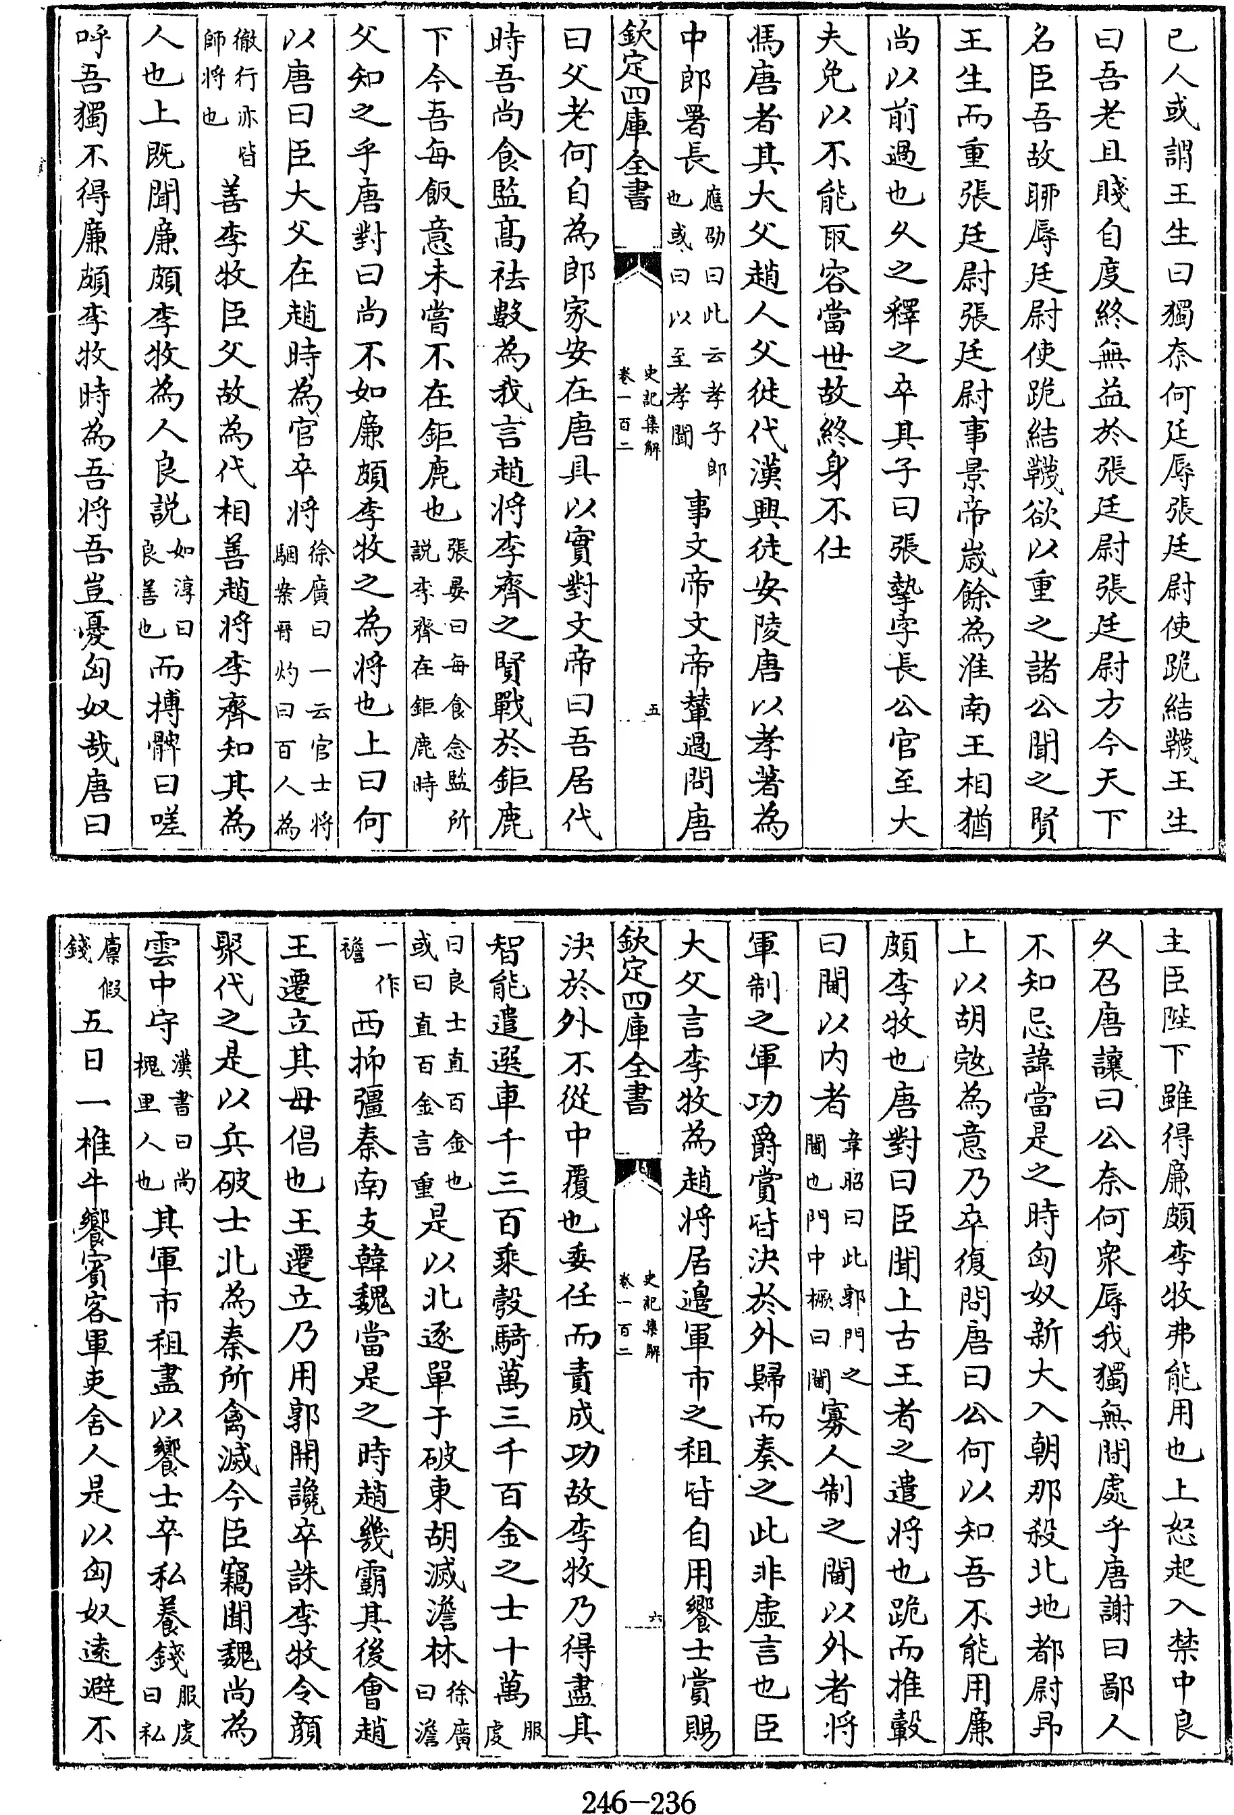 已人或謂王生曰獨奈何廷辱張廷尉使跪結韈王生
曰吾老且賤自度終無益於張廷尉張廷尉方今天下
名臣吾故聊辱廷尉使跪結韈欲以重之諸公聞之賢
王生而重張廷尉張廷尉事景帝歲餘為淮南王相猶
尚以前過也久之釋之卒其子曰張摯字長公官至大
夫免以不能取容當世故終身不仕
馮唐者其大父趙人父徙代漢興徙安陵唐以孝著為
中郎署長應劭曰此云孝子郎也或曰以至孝聞事文帝文帝輦過問唐
欽定四庫全書 史記集解 卷一百二 五
曰父老何自為郎家安在唐具以實對文帝曰吾居代
時吾尚食監高袪數為我言趙將李齊之賢戰於鉅鹿
下今吾每飯意未嘗不在鉅鹿也張晏曰每食念監所說李齊在鉅鹿時
父知之乎唐對曰尚不如廉頗李牧之為將也上曰何
以唐曰臣大父在趙時為官卒將徐廣曰一云官士將駰案晉灼曰百人為
徹行亦皆師將也善李牧臣父故為代相善趙將李齊知其為
人也上既聞廉頗李牧為人良說如淳曰良善也而搏髀曰嗟
呼吾獨不得廉頗李牧時為吾將吾豈憂匈奴哉唐曰
主臣陛下雖得廉頗李牧弗能用也上怒起入禁中良
久召唐讓曰公奈何衆辱我獨無間處乎唐謝曰鄙人
不知忌諱當是之時匈奴新大入朝那殺北地都尉昂
上以胡寇為意乃卒復問唐曰公何以知吾不能用廉
頗李牧也唐對曰臣聞上古王者之遣將也跪而推轂
曰閫以內者韋昭曰此郭門之閫也門中橛曰閫寡人制之閫以外者將
軍制之軍功爵賞皆決於外歸而奏之此非虛言也臣
大父言李牧為趙將居邊軍市之租皆自用饗士賞賜
欽定四庫全書 史記集解 卷一百二 六
決於外不從中覆也委任而責成功故李牧乃得盡其
智能遣選車千三百乘彀騎萬三千百金之士十萬服虔
曰良士直百金也或曰直百金言重是以北逐單于破東胡滅澹林徐廣曰澹
一作襜西抑彊秦南支韓魏當是之時趙幾霸其後會趙
王遷立其母倡也王遷立乃用郭開讒卒誅李牧令顏
聚代之是以兵破士北為秦所禽滅今臣竊聞魏尚為
雲中守漢書曰尚槐里人也其軍市租盡以饗士卒私養錢服虔曰私
廪假錢五日一椎牛饗賓客軍吏舍人是以匈奴遠避不
246-236